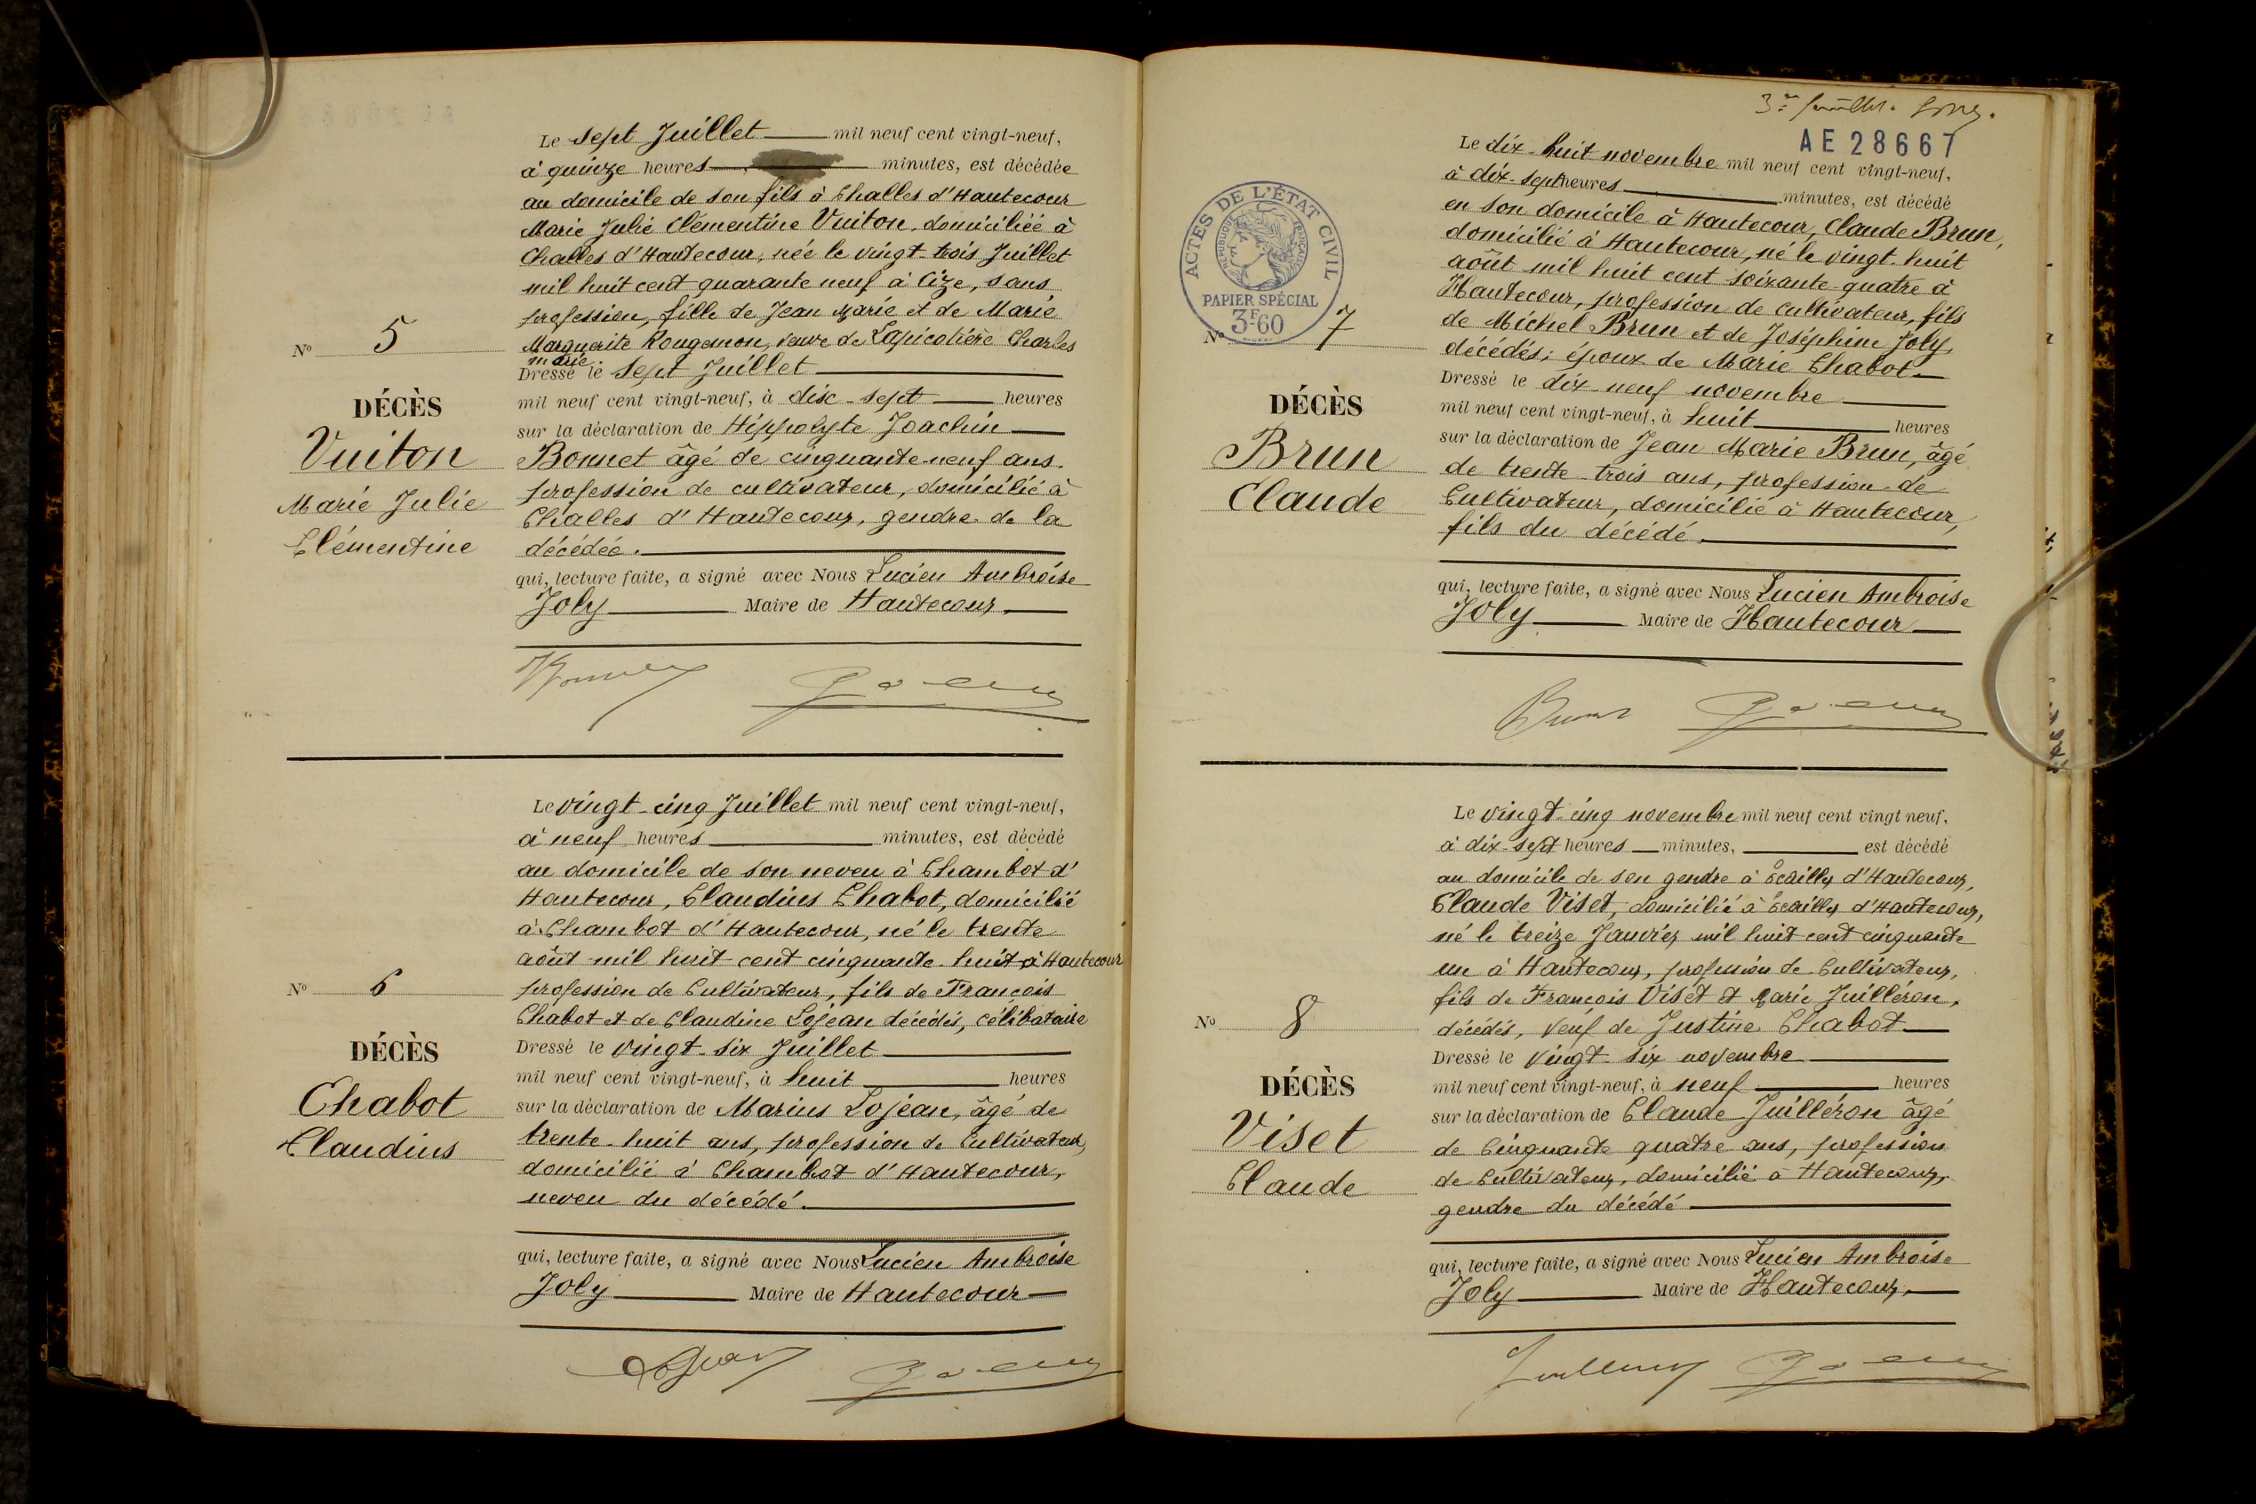 Le sept Juillet mil neuf cent vingt-neuf,
à quinze heures minutes, est décédée
au domicile de son fils à Challes d'Hautecour
Marie Julie Clémentine Vuiton, domiciliée à
Challes d'Hautecour, née le vingt-trois Juillet
mil huit cent quarante neuf à Cize, sans
profession, fille de Jean Marie et de Marie
Marguerite Rougemon, veuve de Lapicotière Charles
marie
Dressé le sept Juillet
mil neuf cent vingt-neuf, à disc-sept heures
sur la déclaration de Hippolyte Joachin
Bonnet âgé de cinquante-neuf ans.
profession de cultivateur, domicilié à
Challes d'Hautecour, gendre de la
décédée.
qui, lecture faite, a signé avec Nous Lucien Ambroise
Joly Maire de Hautecour
No 5
DÉCÈS
Vuiton
Marie Julie
Clémentine
Le vingt-cinq Juillet mil neuf cent vingt-neuf,
à neuf heures minutes, est décédé
au domicile de son neveu à Chambot d'
Hautecour, Claudius Chabot, domicilié
à Chambot d'Hautecour, né le trente
août mil huit cent cinquante-huit à Hautecour
profession de Cultivateur, fils de François
Chabot et de Claudine Lojean décédés, célibataire
Dressé le vingt-six Juillet
mil neuf cent vingt-neuf, à huit heures
sur la déclaration de Marius Lojean, âgé de
trente-huit ans, profession de Cultivateur,
domicilié à Chambot d'Hautecour,
neveu du décédé.
qui, lecture faite, a signé avec Nous Lucien Ambroise
Joly Maire de Hautecour
No 6
DÉCÈS
Chabot
Claudius
AE 28667
ACTES DE L'ÉTAT CIVIL
RÉPUBLIQUE FRANÇAISE
PAPIER SPÉCIAL
3F60
Le dix-huit novembre mil neuf cent vingt-neuf,
à dix-sept heures minutes, est décédé
en son domicile à Hautecour, Claude Brun,
domicilié à Hautecour, né le vingt-huit
août mil huit cent soixante-quatre à
Hautecour, profession de cultivateur, fils
de Michel Brun et de Joséphine Joly,
décédés; époux de Marie Chabot
Dressé le dix-neuf novembre
mil neuf cent vingt-neuf, à huit heures
sur la déclaration de Jean Marie Brun, âgé
de trente-trois ans, profession de
Cultivateur, domicilié à Hautecour,
fils du décédé
qui, lecture faite, a signé avec Nous Lucien Ambroise
Joly Maire de Hautecour
Brun
No 7
DÉCÈS
Brun
Claude
Le vingt-cinq novembre mil neuf cent vingt neuf,
à dix-sept heures minutes, est décédé
au domicile de son gendre à Écailly d'Hautecour,
Claude Viset, domicilié à Écailly d'Hautecour,
né le treize Janvier mil huit cent cinquante
un à Hautecour, profession de Cultivateur,
fils de François Viset et Marie Juilléron,
décédés, veuf de Justine Chabot
Dressé le vingt-six novembre
mil neuf cent vingt-neuf, à neuf heures
sur la déclaration de Claude Juilléron âgé
de Cinquante quatre ans, profession
de Cultivateur, domicilié à Hautecour,
gendre du décédé
qui, lecture faite, a signé avec Nous Lucien Ambroise
Joly Maire de Hautecour,
No 8
DÉCÈS
Viset
Claude